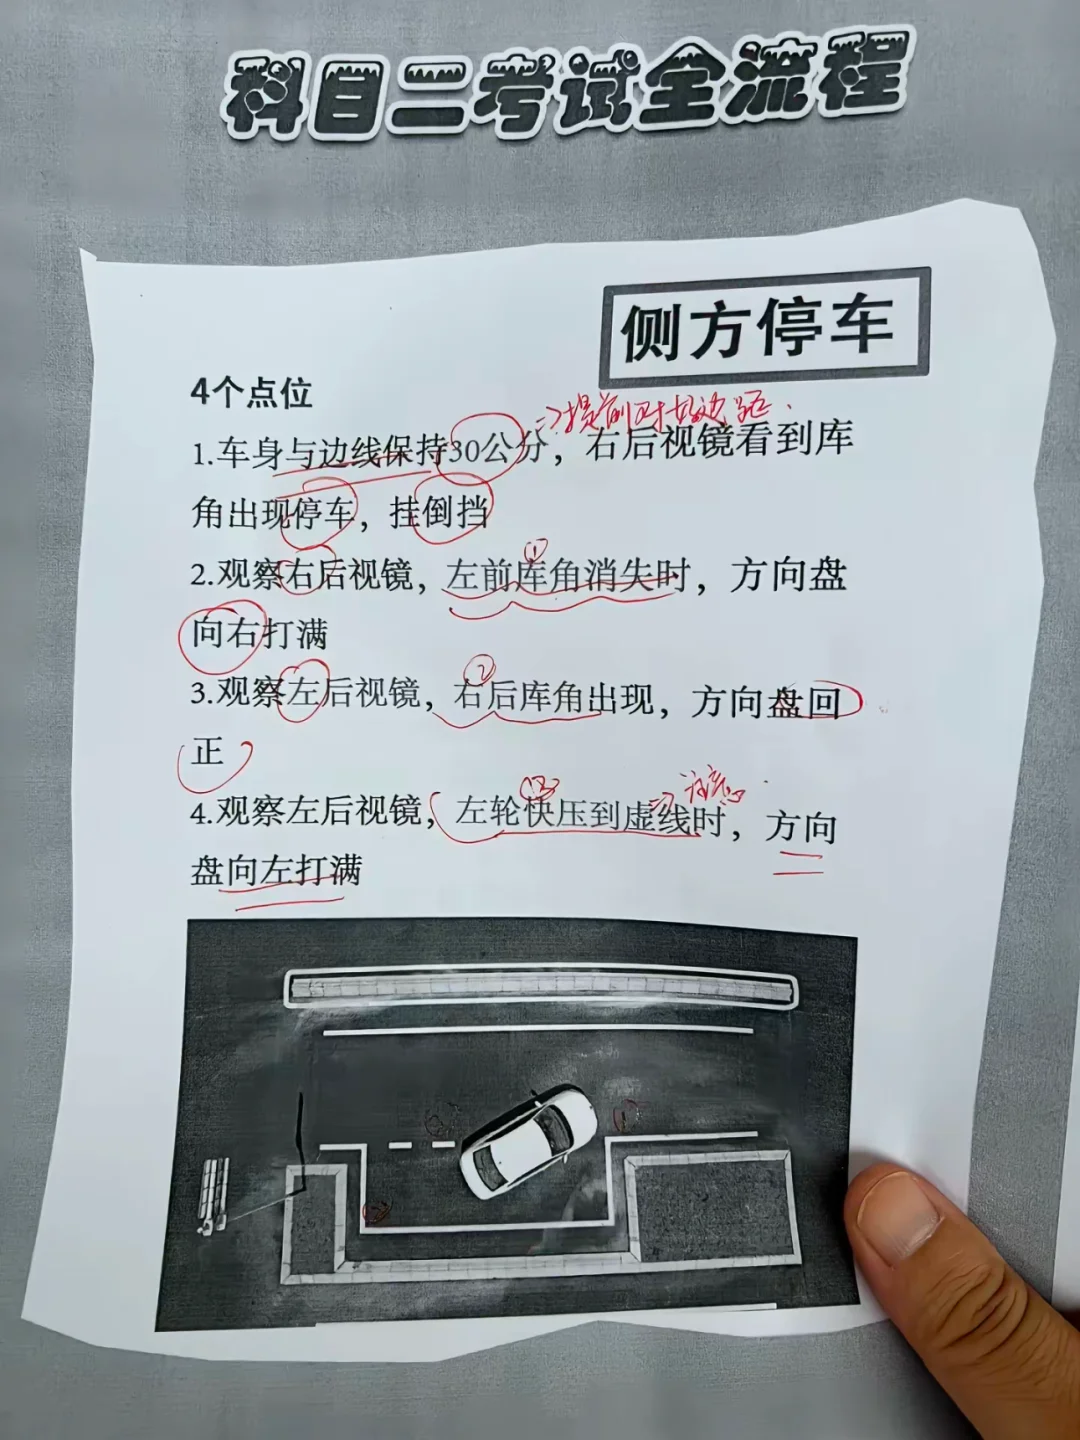 科目二考试全流程
侧方停车
4个点位
⇒提前对好边距.
1.车身与边线保持30公分，右后视镜看到库
角出现停车，挂倒挡
①
2.观察右后视镜，左前库角消失时，方向盘
向右打满
②
3.观察左后视镜，右后库角出现，方向盘回
正
③ ⇒注意
4.观察左后视镜，左轮快压到虚线时，方向
盘向左打满
③ ①
②